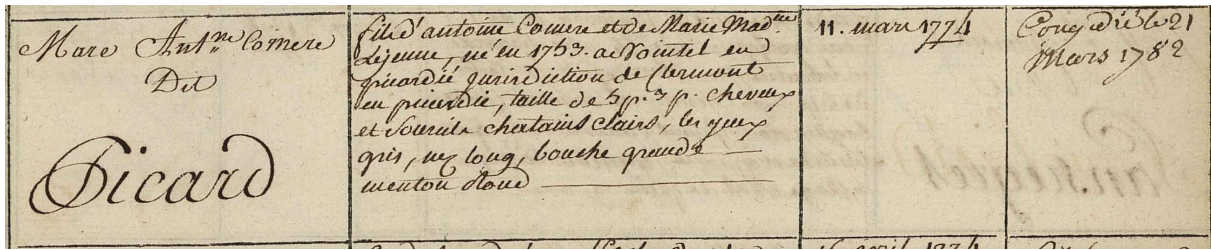 Marc Ant.ne Comere
Dit
Picard
fils d'antoine Comere et de Marie Mad.ne
Lejeune, né en 1753. a Nointel en
picardie jurisdiction de Clermont
en picardie, taille de 5 p. 3 p. cheveux
et Sourcils chatains clairs, les yeux
gris, nez long, bouche grande
menton rond
11. mars 1774
Congédié le 21
Mars 1782
avril 1774